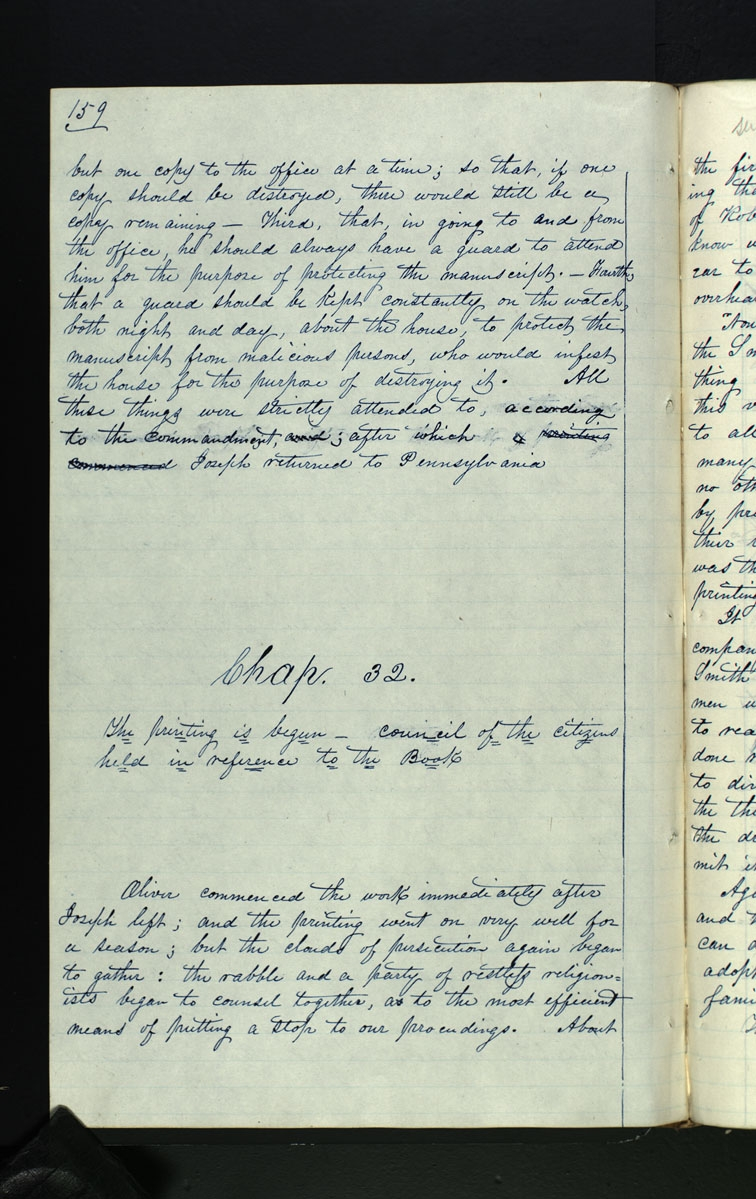 159
but one copy to the office at a time; so that, if one
copy should be destroyed, there would still be a
copy remaining — Third, that, in going to and from
the office, he should always have a guard to attend
him for the purpose of protecting the manuscript. — Fourth,
that a guard should be kept constantly on the watch,
both night and day, about the house, to protect the
manuscript from malicious persons, who would infest
the house for the purpose of destroying it. All
these things were strictly attended to, according
to the commandment, and ; after which printing
commenced Joseph returned to Pennsylvania
Chap. 32.
The printing is begun — council of the citizens
held in reference to the Book
Oliver commenced the work immediately after
Joseph left; and the printing went on very well for
a season; but the clouds of persecution again began
to gather: the rabble and a party of restless religion=
ists began to counsel together, as to the most efficient
means of putting a stop to our proceedings. About
the fir
ing the
of Rob
know w
zar to
overhea
"Now
the Sm
thing
this
to all
many
no oth
by pre
their
was th
printing
It
compan
Smith
men
to rea
done
to dir
the th
the de
mit it
Aga
and t
can
adopt
fami